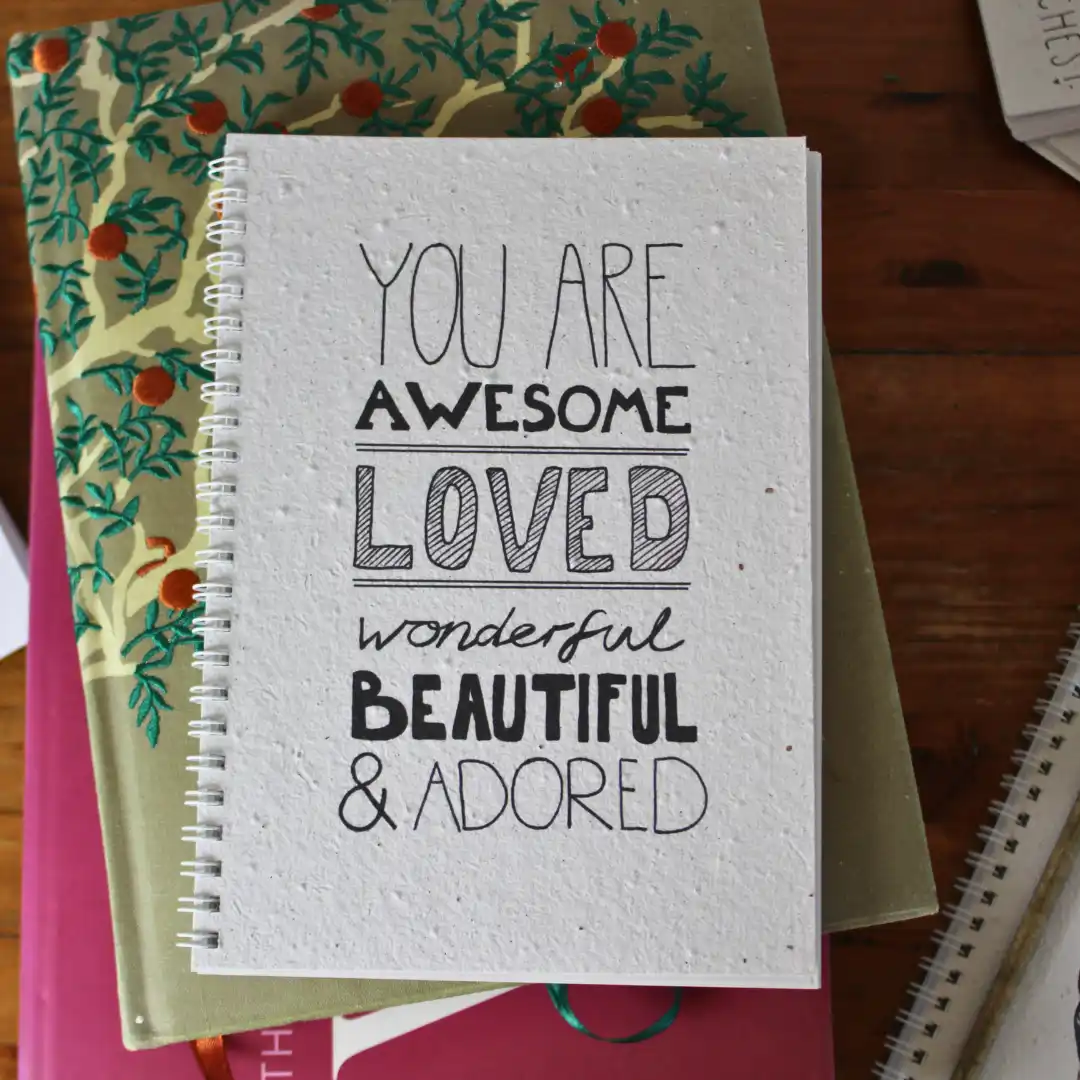 YOU ARE
AWESOME
LOVED
wonderful
BEAUTIFUL
& ADORED
CHES!
TH